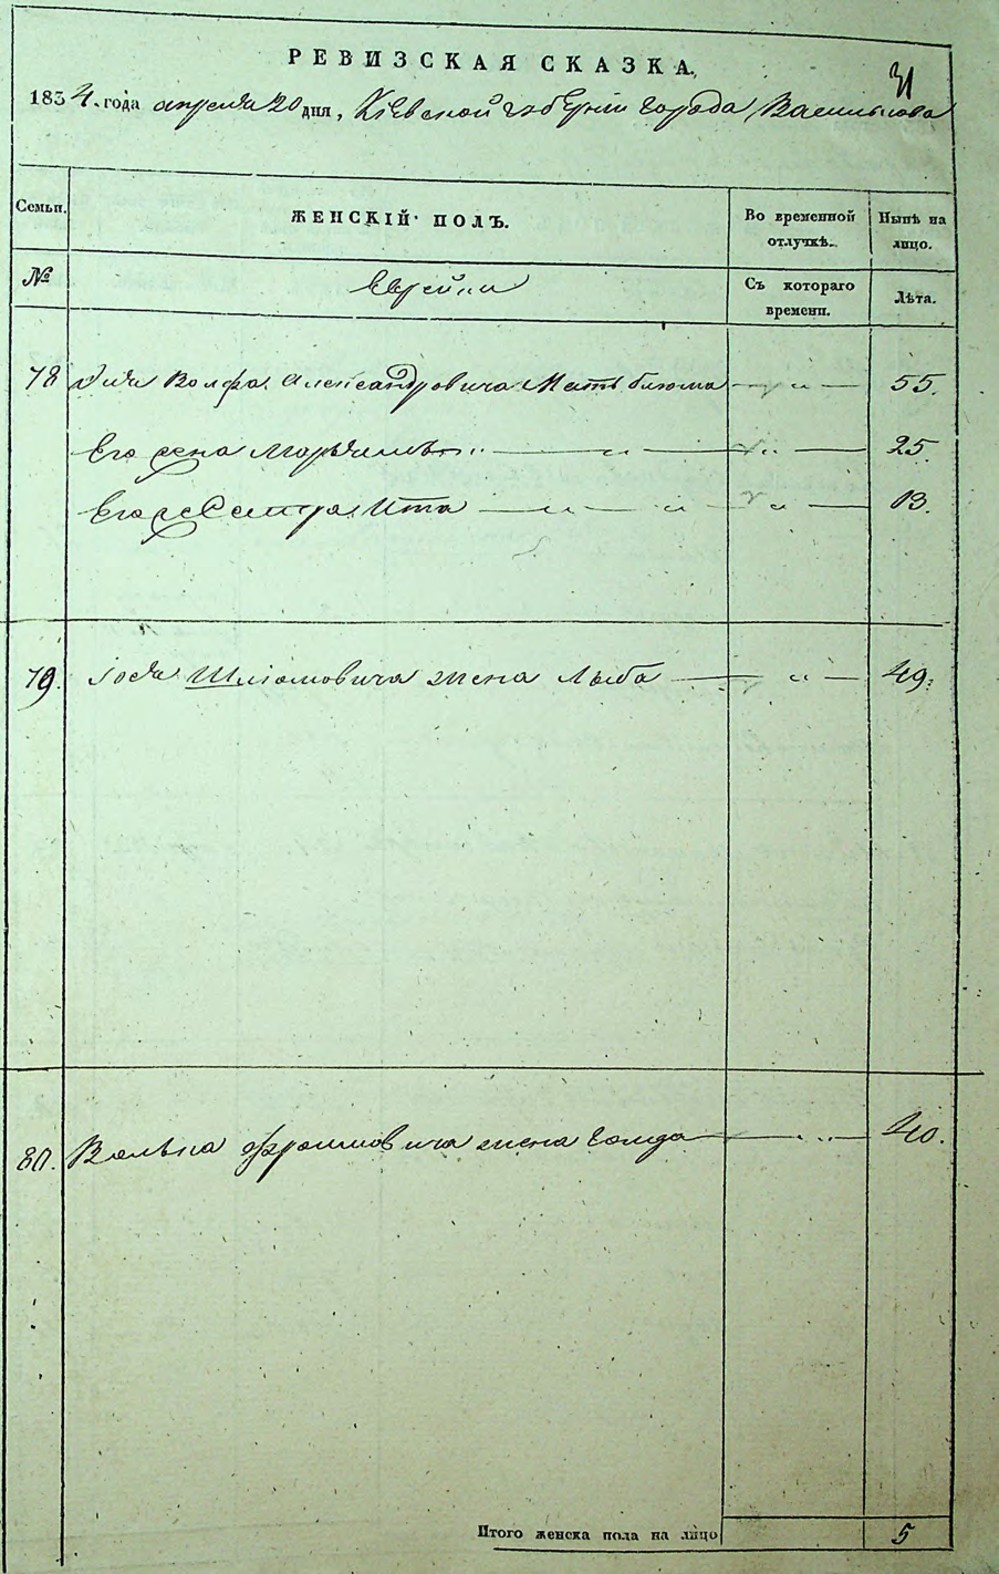 РЕВИЗСКАЯ СКАЗКА,
31
1834. года апреля 20 дня, Кіевской губерніи города Василькова
Семьи. ЖЕНСКІЙ ПОЛЪ. Во временной отлучкѣ. Нынѣ на лицо.
№ Еврейки Съ котораго времени. Лѣта.
78 Волфа Александровича Мать блюма — „ — 55.
Его жена — „ — „ — 25.
Его Сестра Ита — „ — „ — „ — 13.
79. Шліомовича жена Лыба — „ — 49.
80. Волька Фроимовича жена Голда — „ — 40.
Итого женска пола на лицо 5